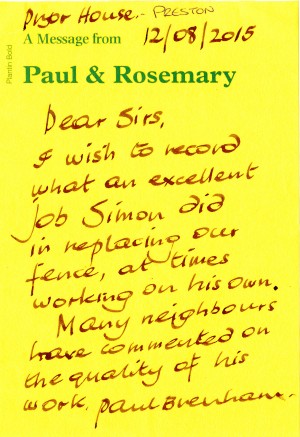 Pryor House,- PRESTON
A Message from 12/08/2015
Paul & Rosemary
Plantin Bold
Dear Sirs,
I wish to record
what an excellent
job Simon did
in replacing our
fence, at times
working on his own.
Many neighbours
have commented on
the quality of his
work. Paul Brenham.